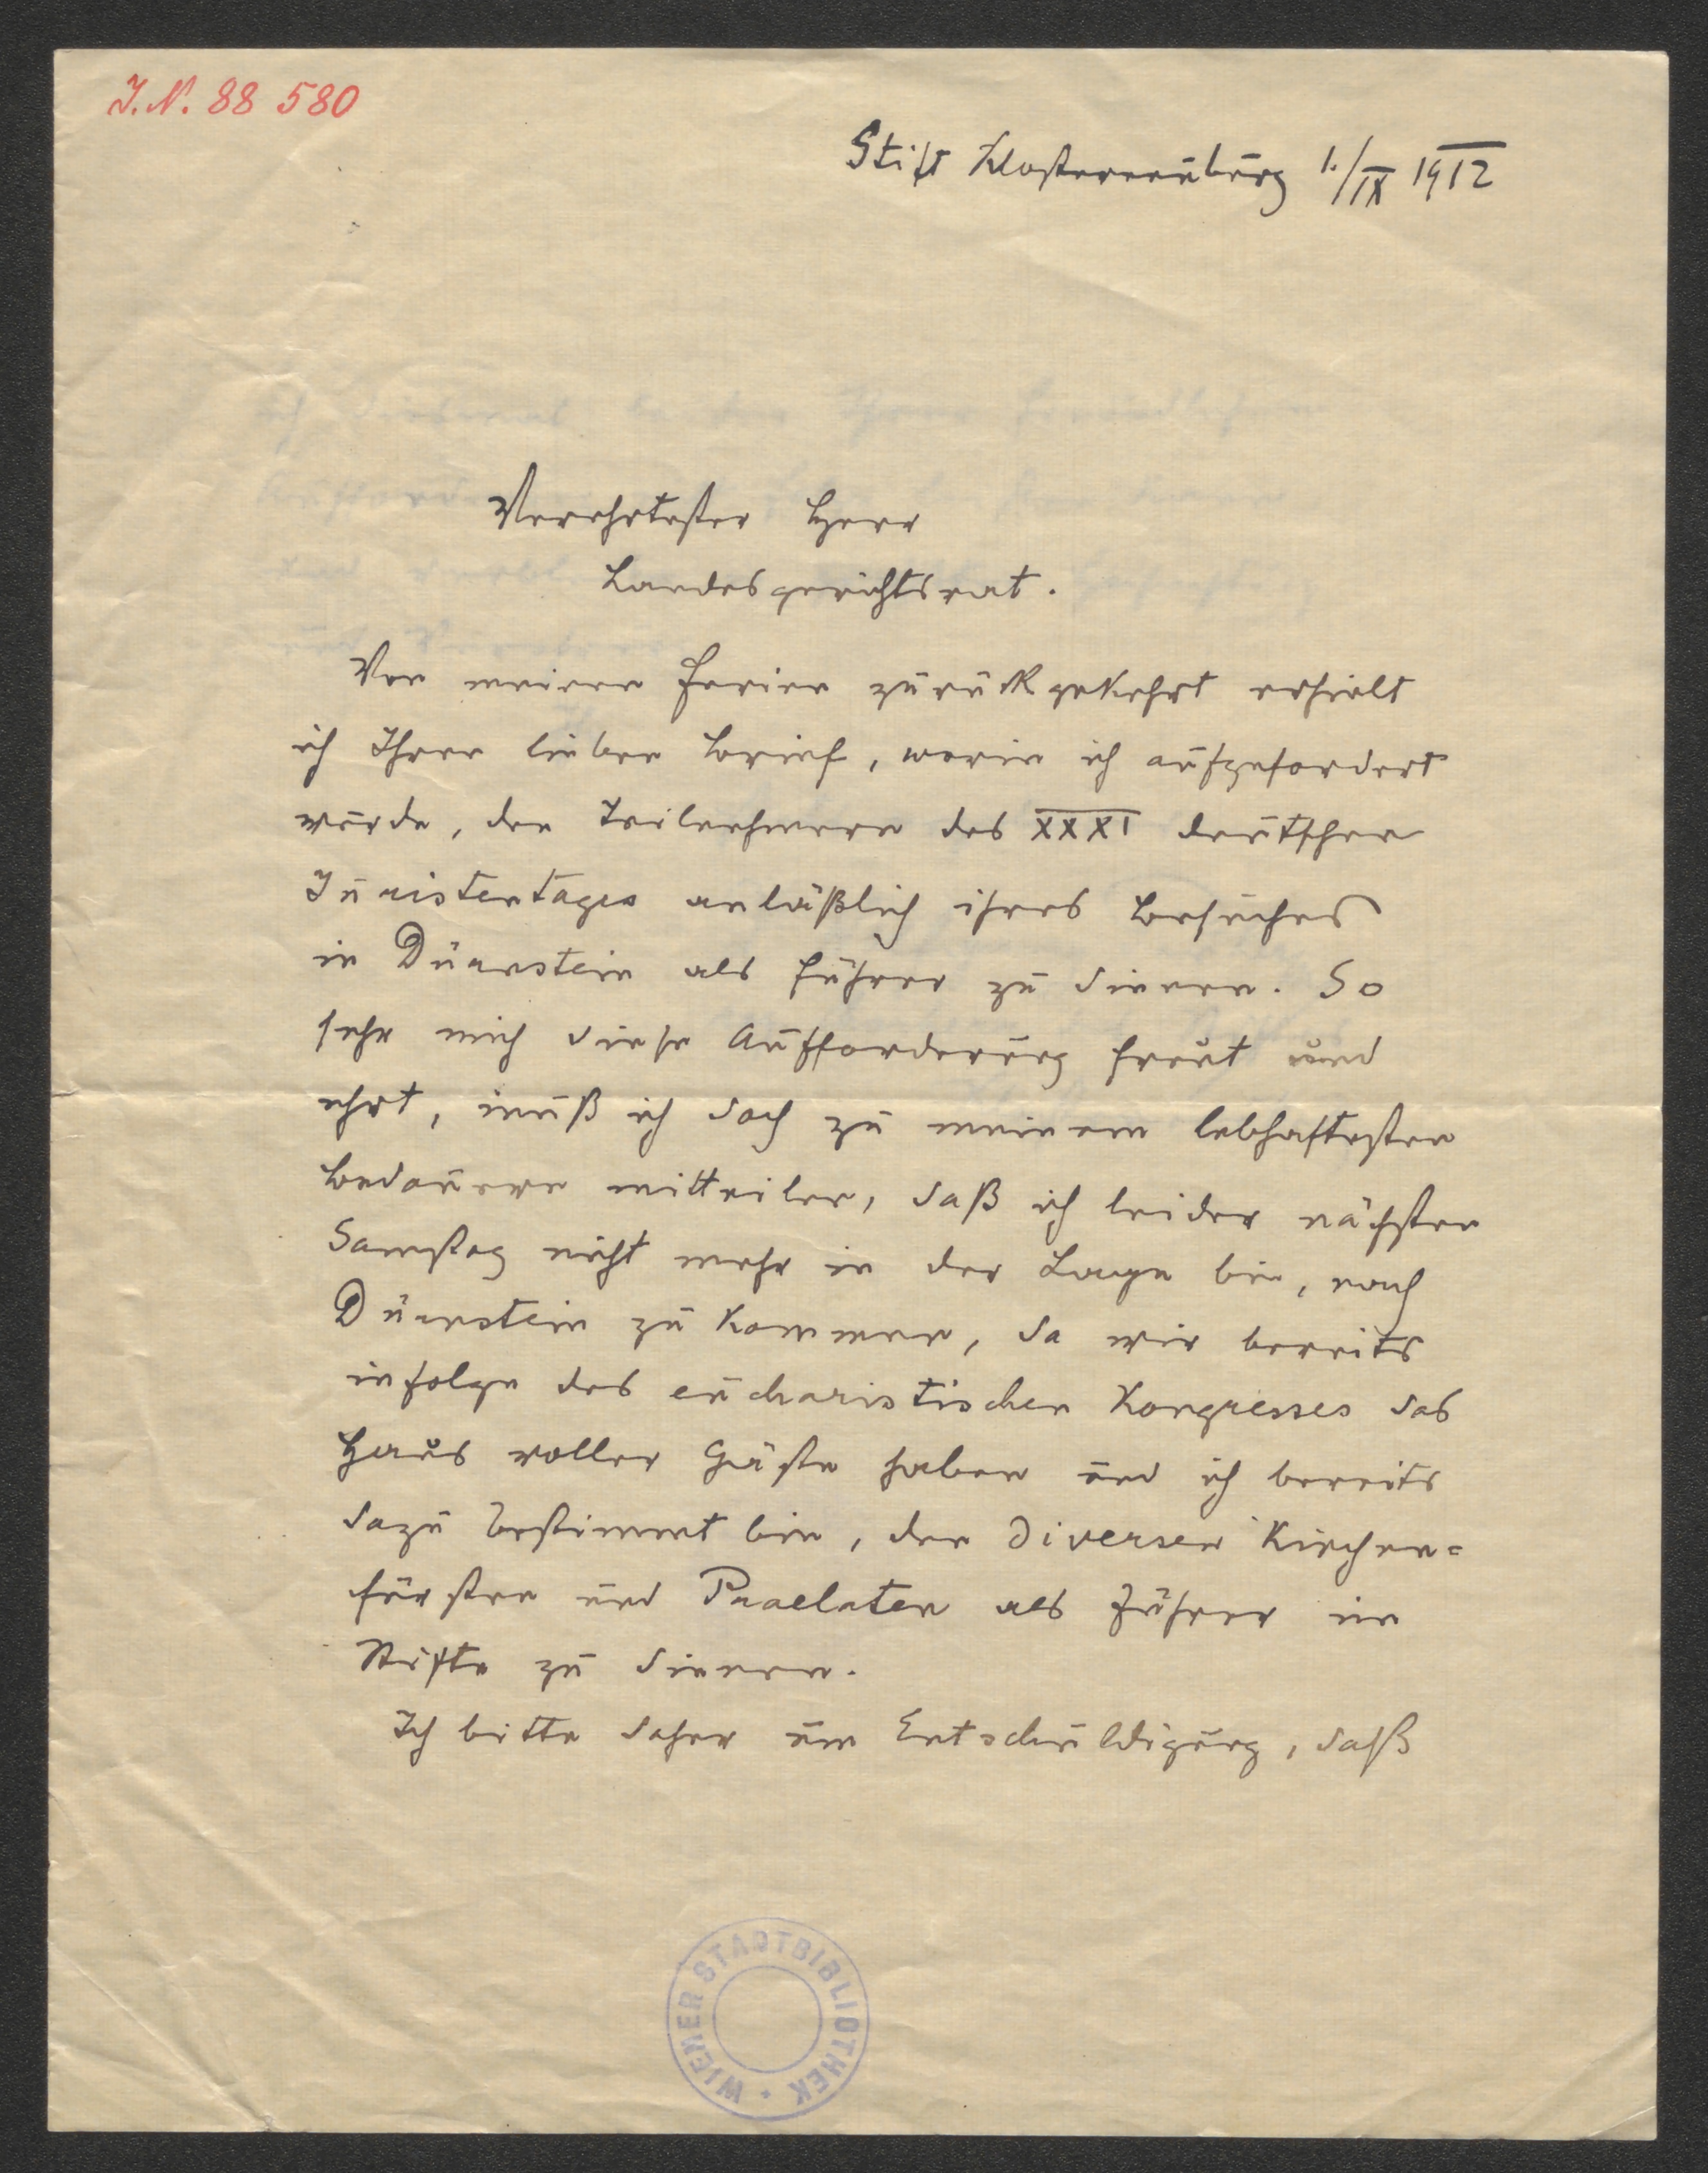 J.N. 88 580
Stift Klosterneuburg 1./IX 1912
Verehrtester Herr
Landesgerichtsrat.
Von meinen Ferien zurückgekehrt erhielt
ich Ihren lieben Brief, worin ich aufgefordert
wurde, den Teilnehmern des XXXI deutschen
Juristentages anläßlich ihres Besuches
in Dürnstein als Führer zu dienen. So
sehr mich diese Aufforderung freut und
ehrt, muß ich doch zu meinem lebhaftesten
Bedauern mitteilen, daß ich leider nächsten
Samstag nicht mehr in der Lage bin, nach
Dürnstein zu kommen, da wir bereits
infolge des eucharistischen Kongresses das
Haus voller Gäste haben und ich bereits
dazu bestimmt bin, den diversen Kirchen=
fürsten und Praelaten als Führer im
Stifte zu dienen.
Ich bitte daher um Entschuldigung, daß
WIENER STADTBIBLIOTHEK